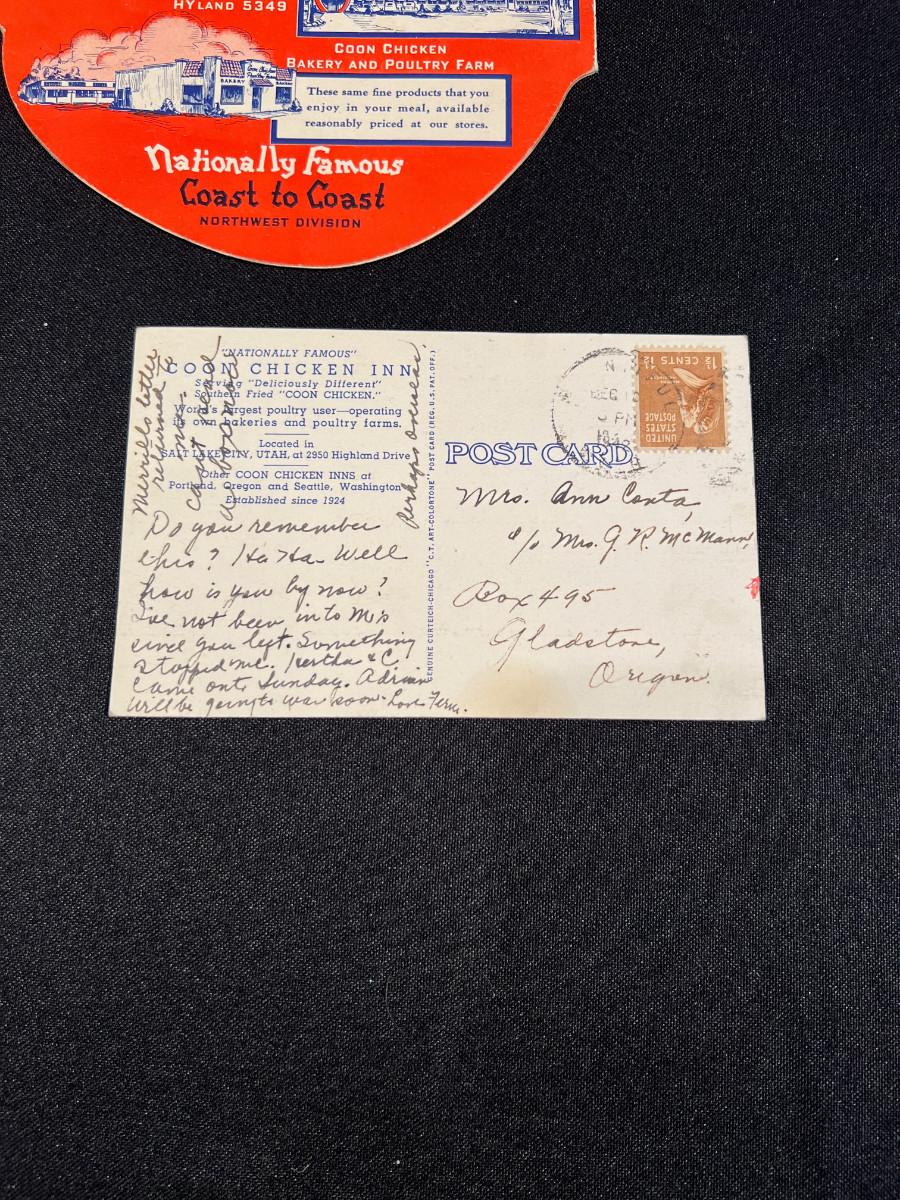 HYLAND 5349
COON CHICKEN
BAKERY AND POULTRY FARM
BAKERY
These same fine products that you
enjoy in your meal, available
reasonably priced at our stores.
Nationally Famous
Coast to Coast
NORTHWEST DIVISION
"NATIONALLY FAMOUS"
COON CHICKEN INN
Serving "Deliciously Different"
Southern Fried "COON CHICKEN."
World's largest poultry user—operating
its own bakeries and poultry farms.
Located in
SALT LAKE CITY, UTAH, at 2950 Highland Drive
Other COON CHICKEN INNS at
Portland, Oregon and Seattle, Washington
Established since 1924
Merrills letter
returned to
me-
cant read
Perhaps overseas.
Do you remember
this? Ha Ha. Well
how is you by now?
I've not been into
since you left. Something
stopped me. Hertha & C.
came out Sunday. Adrian
will be going to war soon- Love Fern.
GENUINE CURTEICH-CHICAGO "C.T. ART-COLORTONE" POST CARD (REG. U.S. PAT. OFF.)
POST CARD
DEC
PM
UNITED
STATES
POSTAGE
1½ CENTS 1½
Mrs. Ann Conta,
c/o Mrs. G. R. McMann,
Box 495
Gladstone,
Oregon.